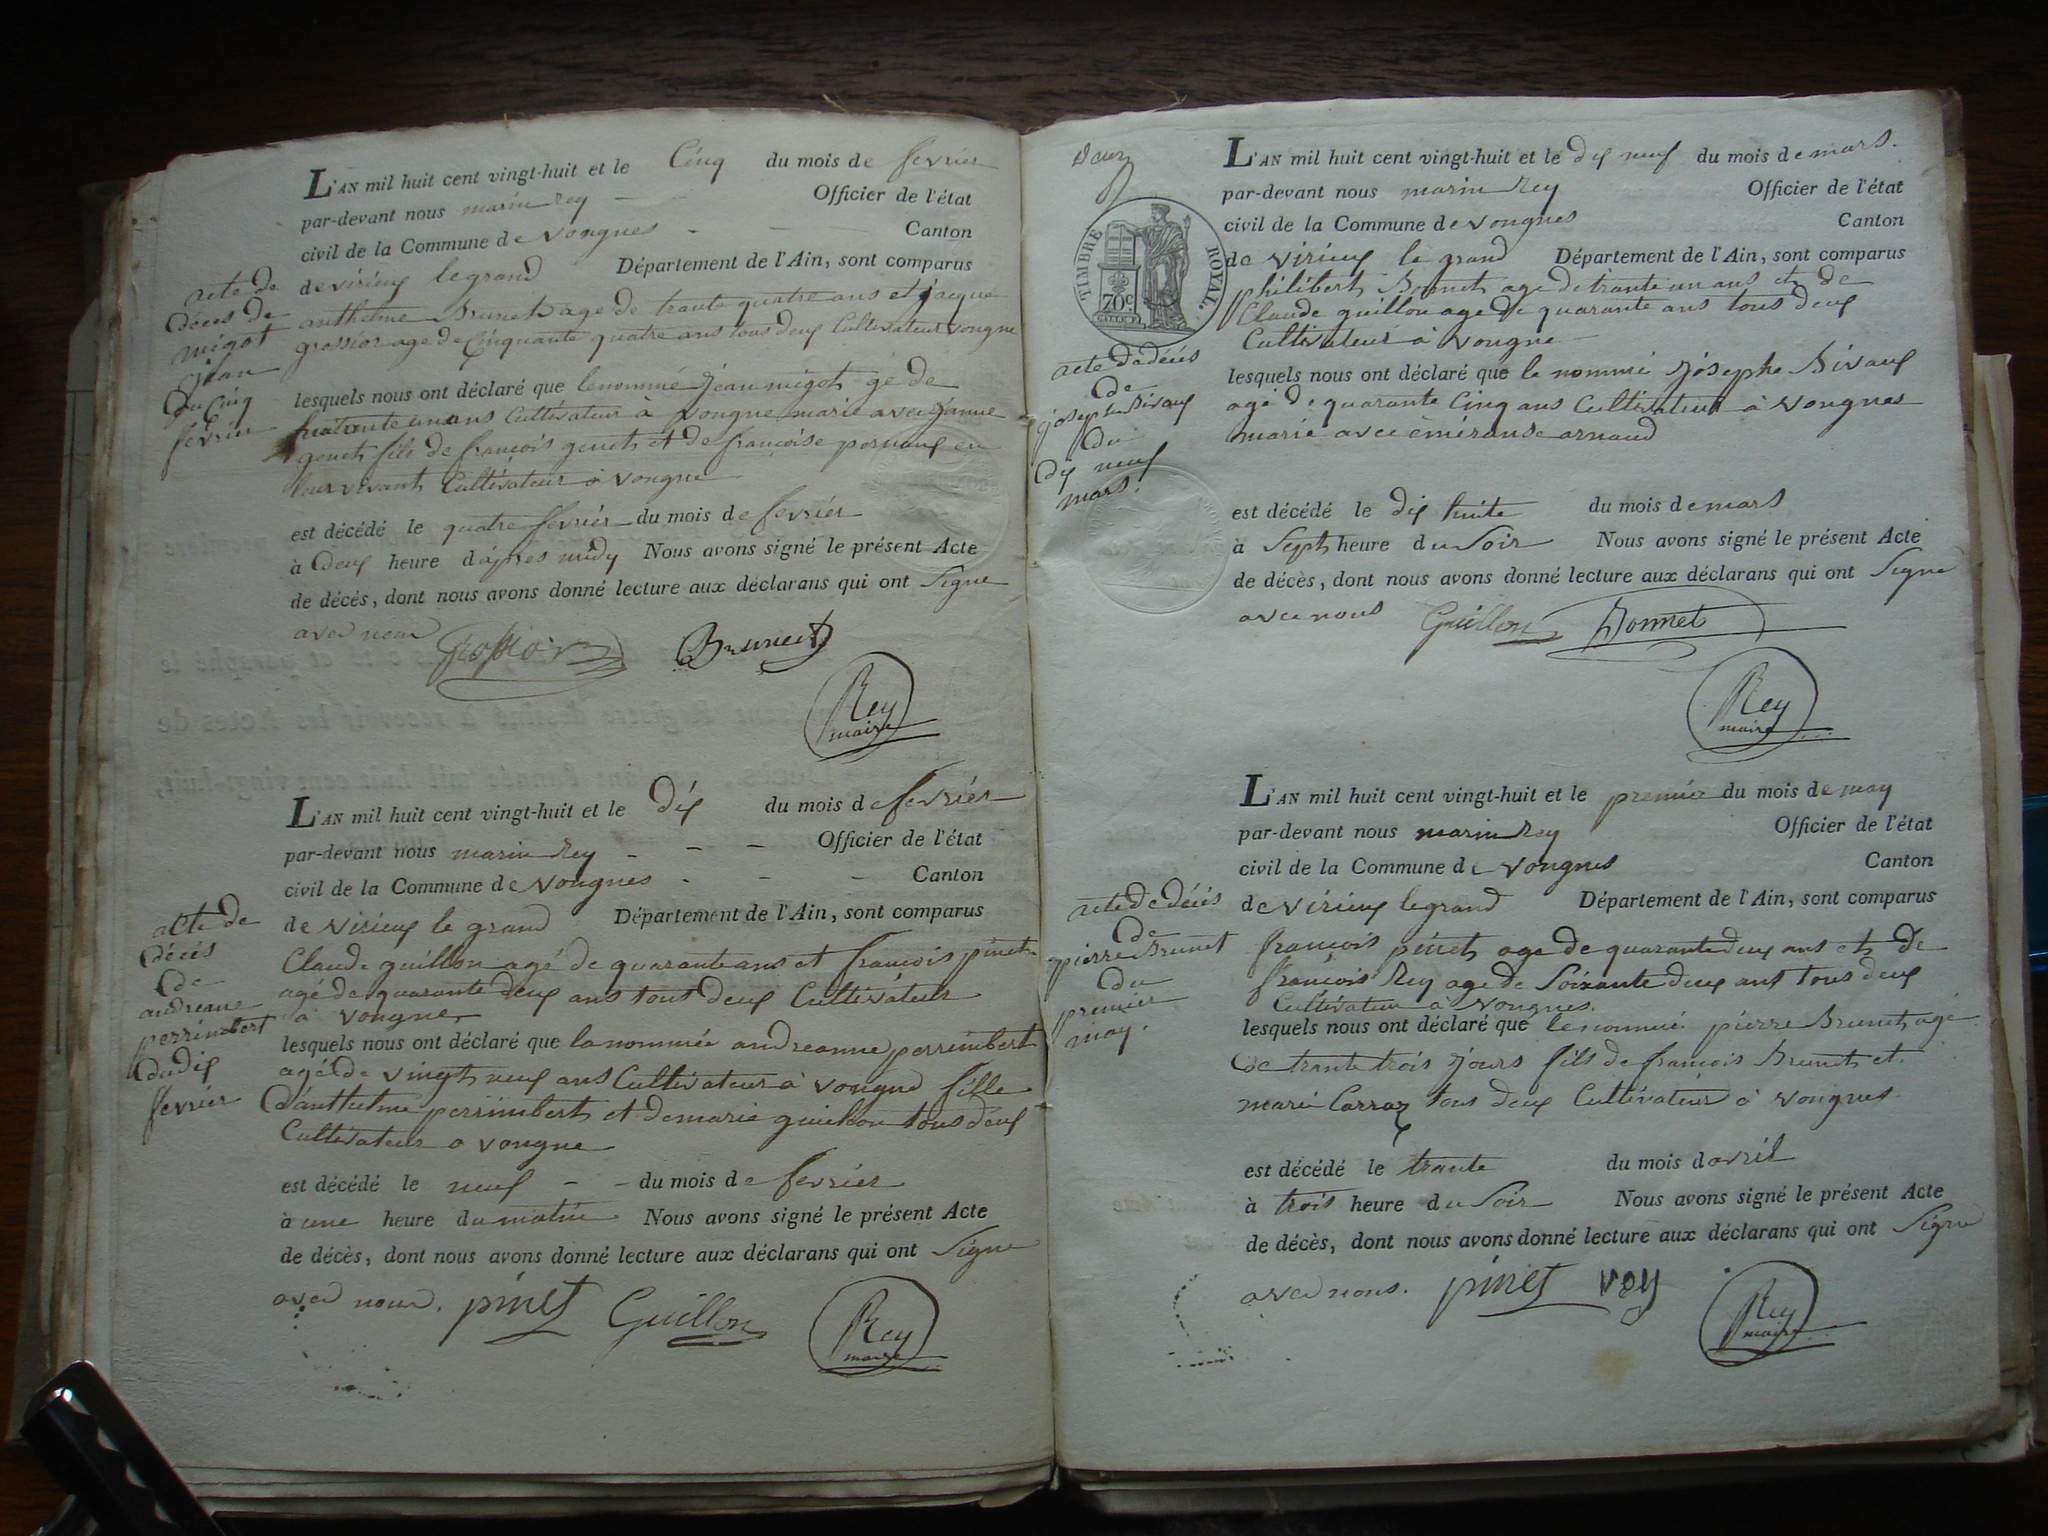 L'AN mil huit cent vingt-huit et le Cinq du mois de fevrier
par-devant nous marin rey Officier de l'état
civil de la Commune de vongnes Canton
de virieux legrand Département de l'Ain, sont comparus
anthelme Brunet age de trante quatre ans et jacque
grossior age de Cinquante quatre ans tous deux Cultivateur vongne
lesquels nous ont déclaré que lenommé jean migot gé de
ans Cultivateur à vongne marie avec janne
genet fils de françois genet et de françoise pornaux en
leur vivant Cultivateur à vongne
est décédé le quatre fevrier du mois de fevrier
à deux heure d'apres midy Nous avons signé le présent Acte
de décès, dont nous avons donné lecture aux déclarans qui ont Signe
avec nous
Brunet
Rey
maire
acte de
déces de
migot
jean
du Cinq
fevrier
L'AN mil huit cent vingt-huit et le dix du mois de fevrier
par-devant nous marin rey Officier de l'état
civil de la Commune de vongnes Canton
de virieux le grand Département de l'Ain, sont comparus
Claude guillon agé de quarante ans et françois pinet
agé de quarante deux ans tout deux Cultivateur
à vongne
lesquels nous ont déclaré que la nommée andreanne perrimbert
agée de vingt neuf ans Cultivateur à vongne fille
d'anthelme perrimbert et de marie guillon tous deux
Cultivateur a vongne
est décédé le neuf du mois de fevrier
à une heure du matin Nous avons signé le présent Acte
de décès, dont nous avons donné lecture aux déclarans qui ont Signe
avec nous. pinet Guillon
Rey
maire
acte de
décés
de
andreane
perrimbert
du dix
fevrier
TIMBRE ROYAL.
70c.
L'AN mil huit cent vingt-huit et le dix neuf du mois de mars.
par-devant nous marin rey Officier de l'état
civil de la Commune de vongnes Canton
de virieux le grand Département de l'Ain, sont comparus
philibert Bonnet age de trante un ans et de
Claude guillon age de quarante ans tous deux
Cultivateur à vongne
lesquels nous ont déclaré que le nommé josephe Bivaux
agé de quarante Cinq ans Cultivateur à vongnes
marie avec émeranse arnaud
est décédé le dix huite du mois de mars
à Sept heure du Soir Nous avons signé le présent Acte
de décès, dont nous avons donné lecture aux déclarans qui ont Signe
avec nous Guillon Bonnet
Rey
maire
acte de décés
de
joseph Bivaux
du
dix neuf
mars.
L'AN mil huit cent vingt-huit et le premier du mois de may
par-devant nous marin rey Officier de l'état
civil de la Commune de vongnes Canton
de virieux legrand Département de l'Ain, sont comparus
françois pinet age de quarante deux ans et de
françois Rey age de Soixante deux ans tous deux
Cultivateur à vongnes.
lesquels nous ont déclaré que lenommé pierre Brunet agé
de trante trois jours fils de françois Brunet et
marie Carraz tous deux Cultivateur à vongnes
est décédé le trante du mois davril
à trois heure du Soir Nous avons signé le présent Acte
de décès, dont nous avons donné lecture aux déclarans qui ont Signe
avec nous. pinet
Rey
maire
acte de décés
de
pierre Brunet
du
premier
may.